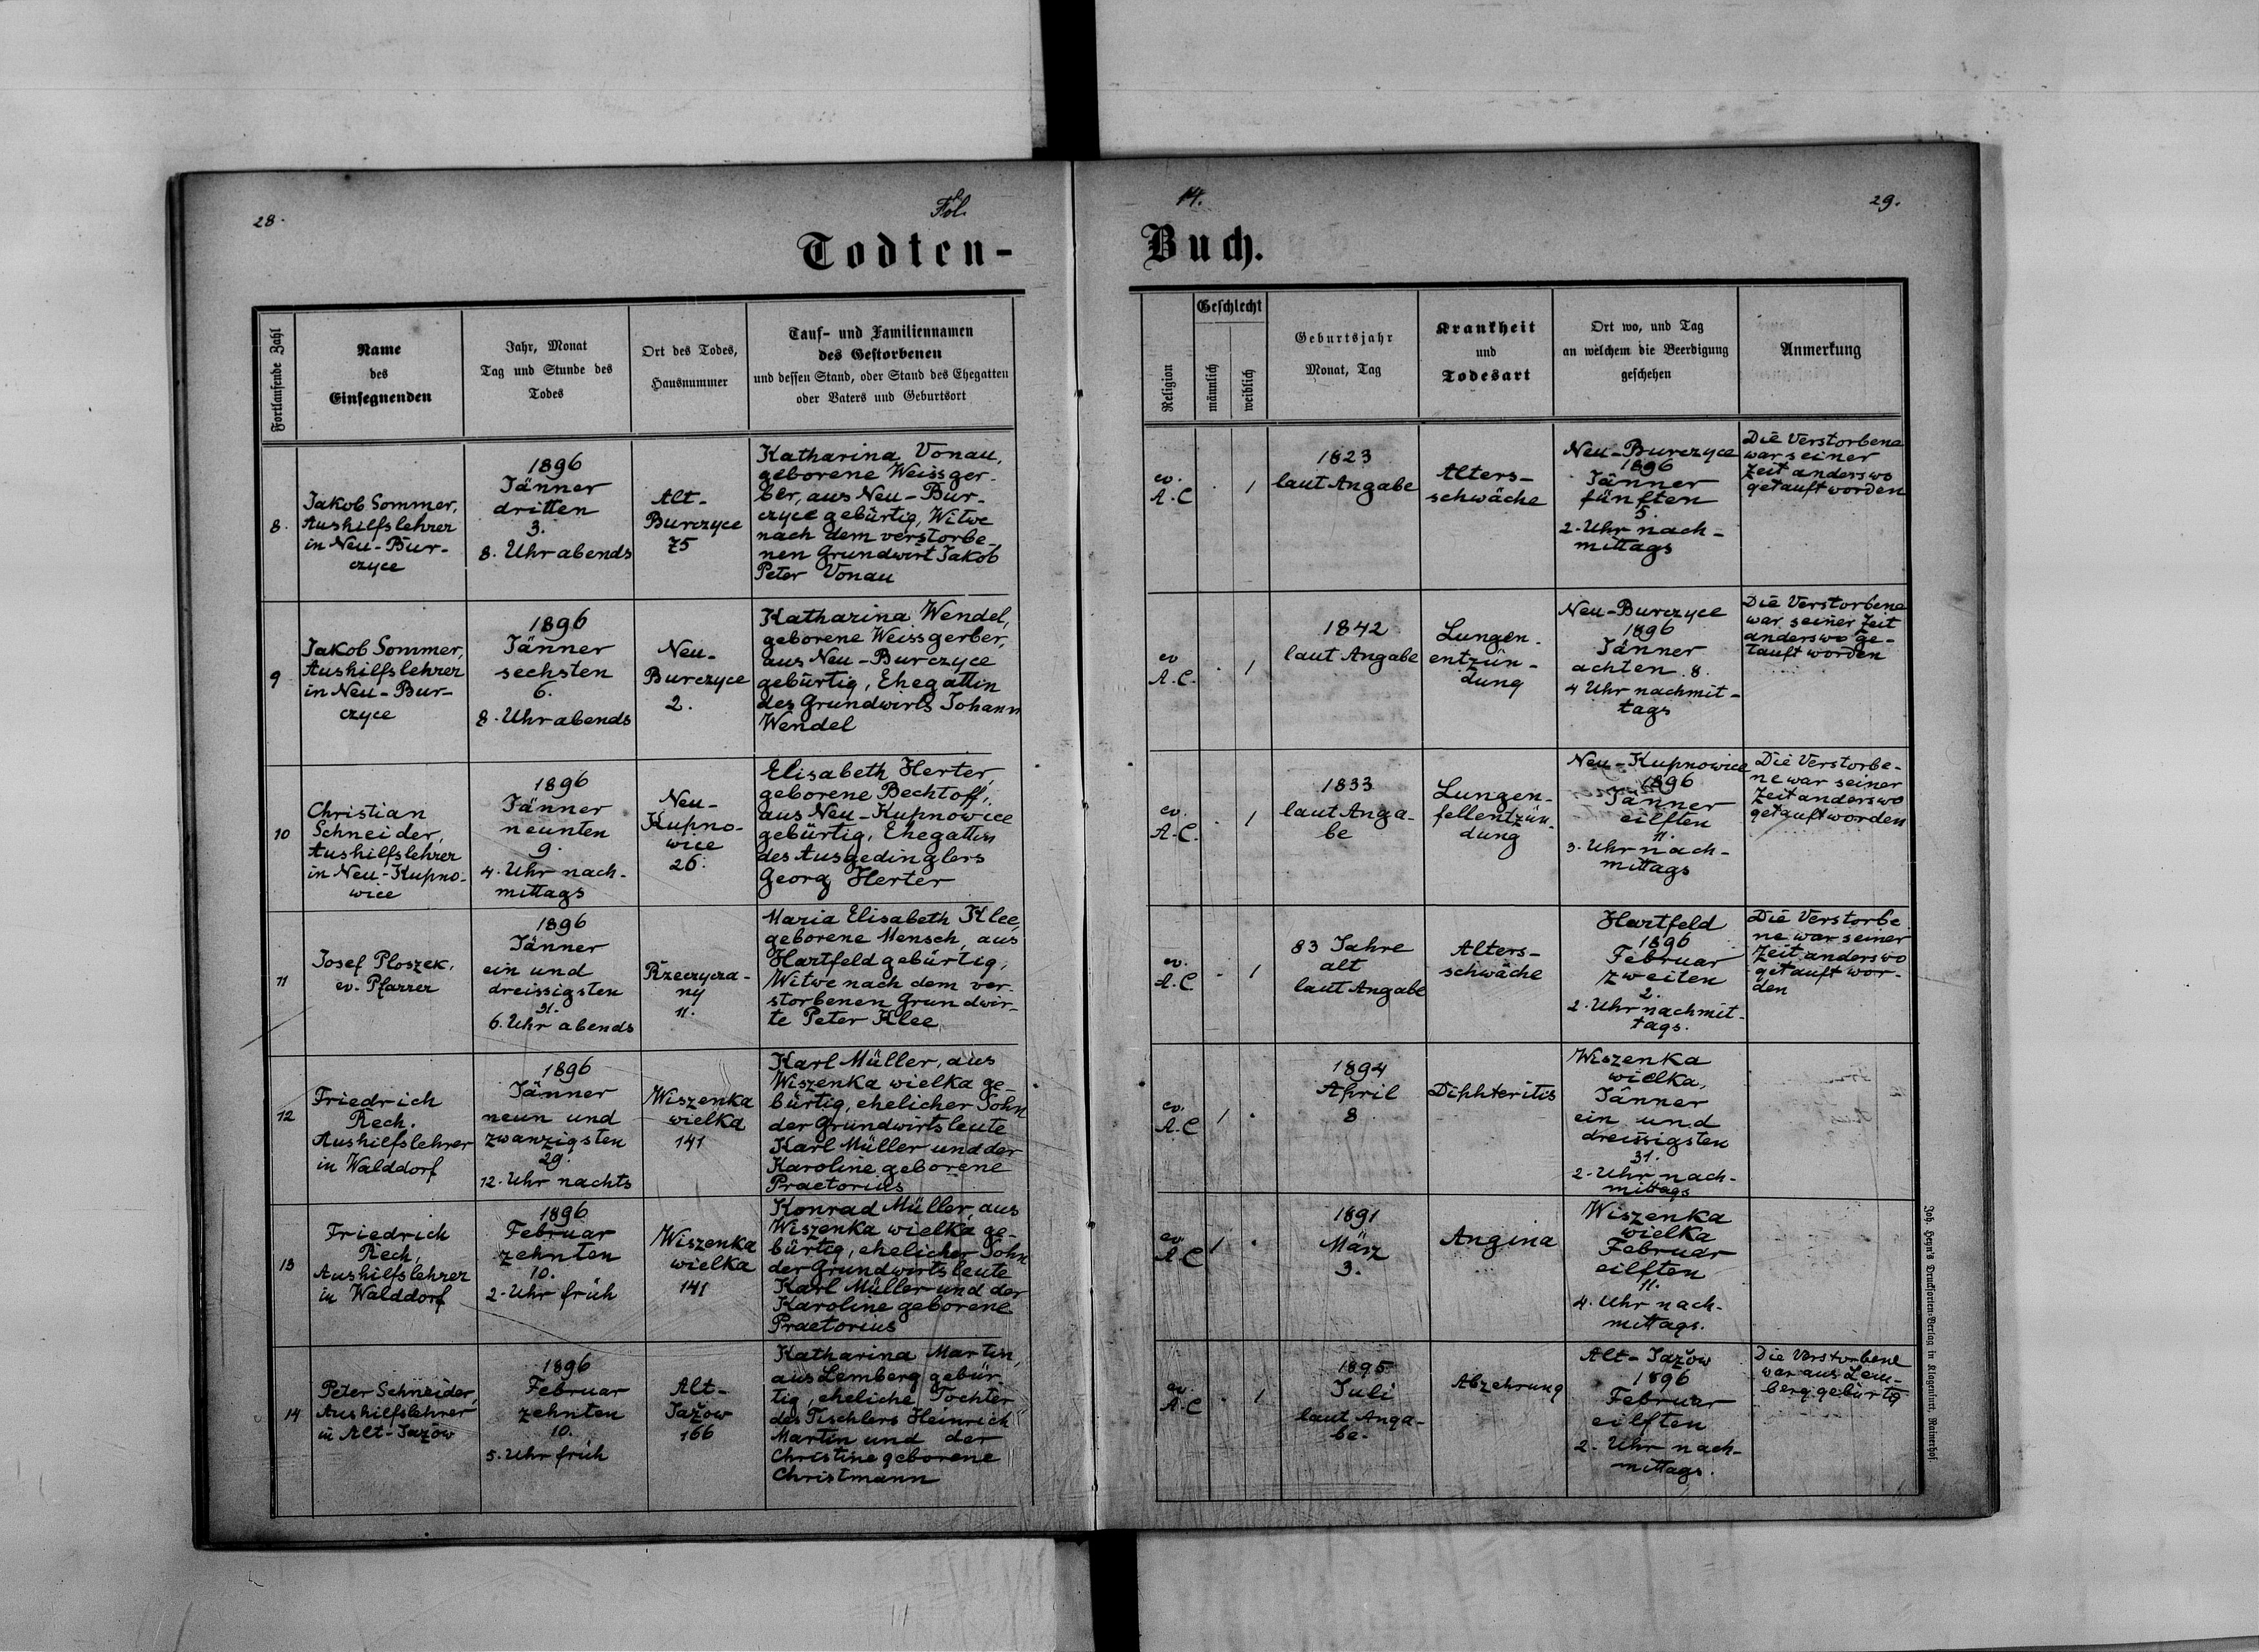 28.
Fol.
14.
29.
Todten-
Buch.
Fortlaufende Zahl
Name
des
Einsegnenden
Jahr, Monat
Tag und Stunde des
Todes
Ort des Todes,
Hausnummer
Tauf- und Familiennamen
des Gestorbenen
und dessen Stand, oder Stand des Ehegatten
oder Vaters und Geburtsort
Religion
Geschlecht
männlich
weiblich
Geburtsjahr
Monat, Tag
Krankheit
und
Todesart
Ort wo, und Tag
an welchem die Beerdigung
geschehen
Anmerkung
8.
Jakob Sommer,
Aushilfslehrer
in Neu-Bur-
czyce
1896
Jänner
dritten
3.
8. Uhr abends
Alt-
Burczyce
75
Katharina Vonau,
geborene Weissger-
ber, aus Neu-Bur-
czyce gebürtig, Witwe
nach dem verstorbe-
nen Grundwirt Jakob
Peter Vonau
ev.
A.C
1
1823
laut Angabe
Alters-
schwäche
Neu-Burczyce
1896
Jänner
fünften
5.
2. Uhr nach-
mittags
Die Verstorbene
war seiner
Zeit anderswo
getauft worden
9
Jakob Sommer,
Aushilfslehrer
in Neu-Bur-
czyce
1896
Jänner
sechsten
6.
8. Uhr abends
Neu-
Burczyce
2.
Katharina Wendel,
geborene Weissgerber,
aus Neu-Burczyce
gebürtig, Ehegattin
des Grundwirts Johann
Wendel
ev
A.C.
1
1842
laut Angabe
Lungen-
entzün-
dung
Neu-Burczyce
1896
Jänner
achten 8.
4 Uhr nachmit-
tags
Die Verstorbene
war seiner Zeit
anderswo ge-
tauft worden
10
Christian
Schneider,
Aushilfslehrer
in Neu-Kupno-
wice
1896
Jänner
neunten
9.
4. Uhr nach-
mittags
Neu-
Kupno-
wice
26.
Elisabeth Herter,
geborene Bechtoff,
aus Neu-Kupnowice
gebürtig, Ehegattin
des Ausgedinglers
Georg Herter
ev.
A.C.
1
1833
laut Anga-
be
Lungen-
fellentzün-
dung
Neu-Kupnowice
1896
Jänner
eilften
11.
3. Uhr nach-
mittags
Die Verstorbe-
ne war seiner
Zeit anderswo
getauft worden
11
Josef Ploszek,
ev. Pfarrer
1896
Jänner
ein und
dreissigsten
31.
6. Uhr abends
Rzeczyca-
ny
11.
Maria Elisabeth Klee,
geborene Mensch, aus
Hartfeld gebürtig,
Witwe nach dem ver-
storbenen Grundwir-
te Peter Klee
ev.
A.C
1
83 Jahre
alt
laut Angabe
Alters-
schwäche
Hartfeld
1896
Februar
zweiten
2.
2. Uhr nachmit-
tags.
Die Verstorbe
ne war seiner
Zeit anderswo
getauft wor-
den
12
Friedrich
Rech.
Aushilfslehrer
in Walddorf
1896
Jänner
neun und
zwanzigsten
29.
12. Uhr nachts
Wiszenka
wielka
141
Karl Müller, aus
Wiszenka wielka ge-
bürtig, ehelicher Sohn
der Grundwirtsleute
Karl Müller und der
Karoline geborene
Praetorius
ev.
A.C
1
1894
April
8
Diphteritis
Wiszenka
wielka,
Jänner
ein und
dreissigsten
31.
2. Uhr nach-
mittags
13
Friedrich
Rech,
Aushilfslehrer
in Walddorf
1896
Februar
zehnten
10.
2. Uhr früh
Wiszenka
wielka
141
Konrad Müller, aus
Wiszenka wielka ge-
bürtig, ehelicher Sohn
der Grundwirtsleute
Karl Müller und der
Karoline geborene
Praetorius
ev
A.C
1
1891
März
3.
Angina
Wiszenka
wielka
Februar
eilften
11.
4. Uhr nach-
mittags.
14
Peter Schneider,
Aushilfslehrer
in Alt-Jažow
1896
Februar
zehnten
10.
5. Uhr früh
Alt-
Jažow
166
Katharina Martin,
aus Lemberg gebür
tig, eheliche Tochter
des Tischlers Heinrich
Martin und der
Christine geborene
Christmann
ev.
A.C
1
1895
Juli
laut Anga-
be.
Abzehrung
Alt-Jažow
1896
Februar
eilften
2. Uhr nach-
mittags.
Die Verstorbene
war aus Lem-
berg gebürtig
Joh. Heyn's Drucksorten-Verlag in Klagenfurt, Rainerhof